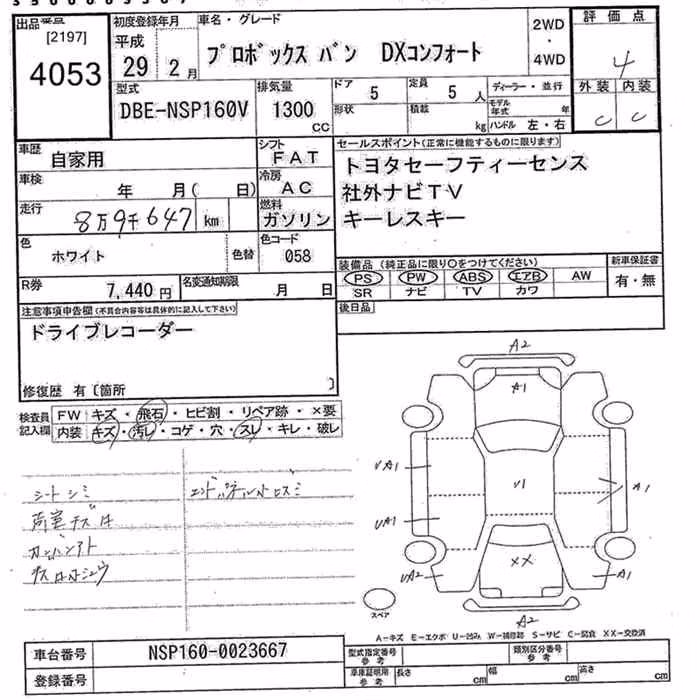 出品番号
[2197]
4053
初度登録年月
平成
29 2月
車名・グレード
プロボックス バン DXコンフォート
2WD
・
4WD
評価点
4
外装 内装
C C
型式
DBE-NSP160V
排気量
1300
CC
ドア 5
定員 5 人
形状
積載 kg
ディーラー・並行
モデル年式 年
ハンドル 左・右
車歴
自家用
シフト
FAT
車検
年 月( 日)
冷房
AC
走行
8万9千647 km
燃料
ガソリン
色
ホワイト
色替
色コード
058
R券
7,440円
名変通知期限
月 日
セールスポイント(正常に機能するものに限ります)
トヨタセーフティーセンス
社外ナビTV
キーレスキー
装備品(純正品に限り〇をつけてください)
PS PW ABS エアB AW
SR ナビ TV カワ
新車保証書
有・無
後日品
注意事項申告欄(不具合内容等は具体的に記入して下さい)
ドライブレコーダー
修復歴 有〔箇所 〕
検査員記入欄
FW キズ・飛石・ヒビ割・リペア跡・×要
内装 キズ・汚レ・コゲ・穴・スレ・キレ・破レ
シートシミ
荷室キズ
A2
A1
UA1
U1
A1
UA1
XX
UA2
A1
A2
スペア
A-キズ E-エクボ U-凹み W-補修跡 S-サビ C-腐食 XX-交換済
車台番号
NSP160-0023667
登録番号
型式指定番号
参考
類別区分番号
参考
車庫証明用
参考
長さ cm
幅 cm
高さ cm